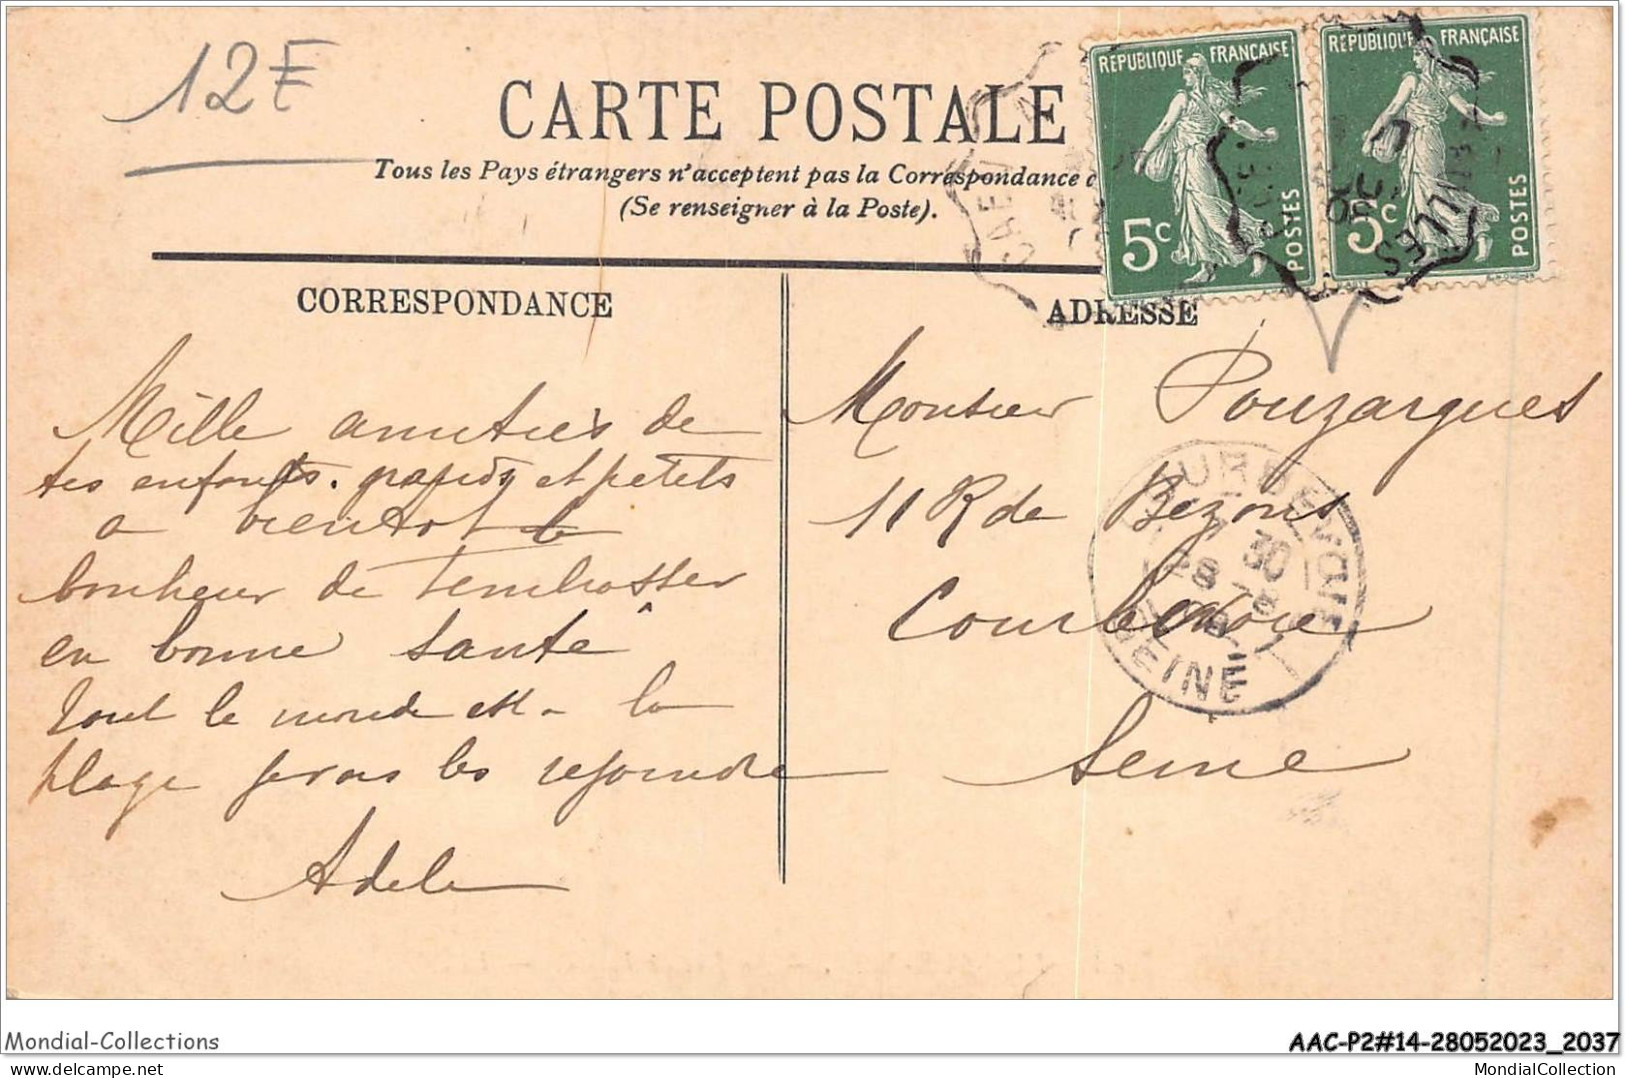 12F
CARTE POSTALE
Tous les Pays étrangers n'acceptent pas la Correspondance
(Se renseigner à la Poste).
REPUBLIQUE FRANÇAISE
5c
POSTES
REPUBLIQUE FRANÇAISE
5c
POSTES
CAEN
CORRESPONDANCE
ADRESSE
Mille amitiés de
tes enfants. grands et petits
a bientot le
bonheur de t'embrasser
en bonne santé
Tout le monde est a la
plage je vais les rejoindre
Adele
Monsieur Pouzargues
11 R de Bezons
Courbevoie
Seine
COURBEVOIE
7 30
SEINE
Mondial-Collections
AAC-P2#14-28052023_2037
MondialCollection